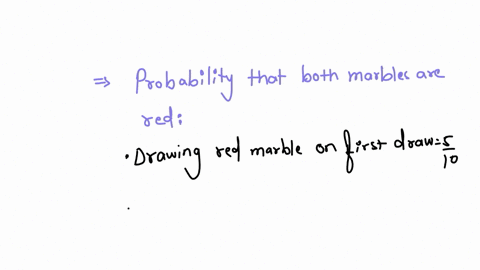 ⇒ Probability that both marbles are
red:
• Drawing red marble on first draw = 5/10
•